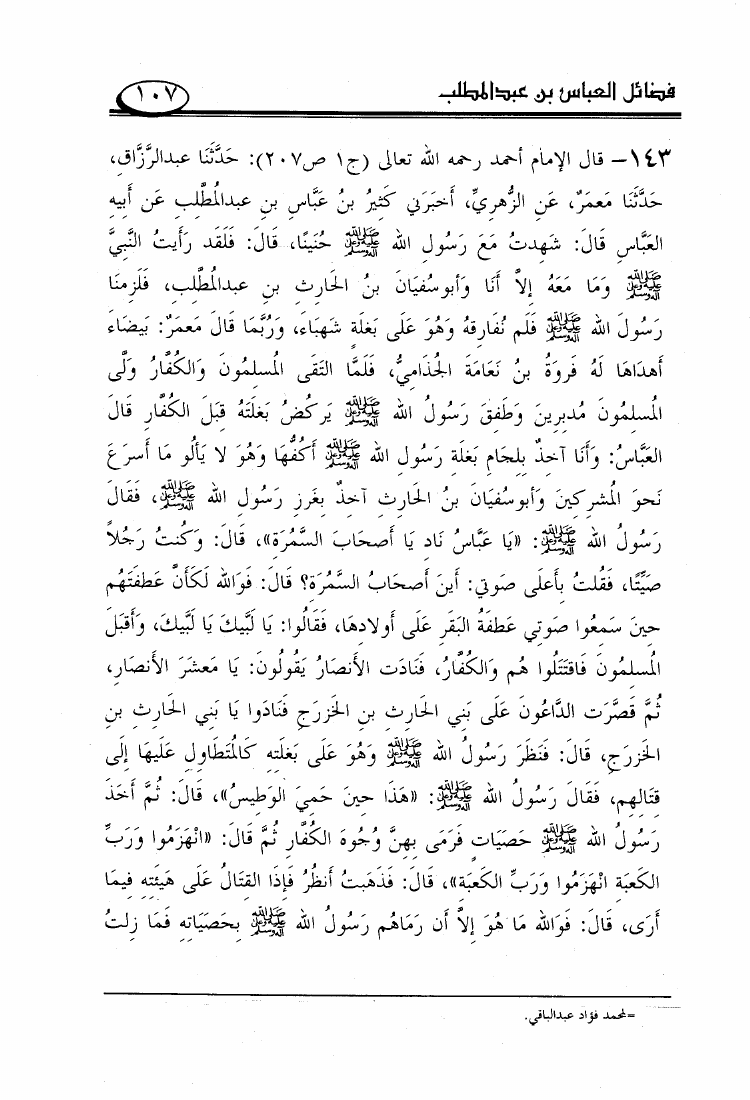 فضائل العباس بن عبدالمطلب
١٠٧
١٤٣- قال الإمام أحمد رحمه الله تعالى (ج١ ص٢٠٧): حَدَّثَنَا عبدالرَّزَّاق،
حَدَّثَنَا مَعمَرٌ، عَنِ الزُّهرِيِّ، أَخبَرَنِي كَثِيرُ بنُ عَبَّاسِ بنِ عبدالمُطَّلِبِ عَن أَبِيهِ
العَبَّاسِ قَالَ: شَهِدتُ مَعَ رَسُولِ الله ﷺ حُنَينًا، قَالَ: فَلَقَد رَأَيتُ النَّبِيَّ
ﷺ وَمَا مَعَهُ إِلاَّ أَنَا وَأَبوسُفيَانَ بنُ الحَارِثِ بنِ عبدالمُطَّلِبِ، فَلَزِمنَا
رَسُولَ الله ﷺ فَلَم نُفَارِقهُ وَهُوَ عَلَى بَغلَةٍ شَهبَاءَ، وَرُبَّمَا قَالَ مَعمَرٌ: بَيضَاءَ
أَهدَاهَا لَهُ فَروَةُ بنُ نَعَامَةَ الجُذَامِيُّ، فَلَمَّا التَقَى المُسلِمُونَ وَالكُفَّارُ وَلَّى
المُسلِمُونَ مُدبِرِينَ وَطَفِقَ رَسُولُ الله ﷺ يَركُضُ بَغلَتَهُ قِبَلَ الكُفَّارِ قَالَ
العَبَّاسُ: وَأَنَا آخِذٌ بِلِجَامِ بَغلَةِ رَسُولِ الله ﷺ أَكُفُّهَا وَهُوَ لا يَألُو مَا أَسرَعَ
نَحوَ المُشرِكِينَ وَأَبوسُفيَانَ بنُ الحَارِثِ آخِذٌ بِغَرزِ رَسُولِ الله ﷺ، فَقَالَ
رَسُولُ الله ﷺ: «يَا عَبَّاسُ نَادِ يَا أَصحَابَ السَّمُرَةِ»، قَالَ: وَكُنتُ رَجُلاً
صَيِّتًا، فَقُلتُ بِأَعلَى صَوتِي: أَينَ أَصحَابُ السَّمُرَةِ؟ قَالَ: فَوَالله لَكَأَنَّ عَطفَتَهُم
حِينَ سَمِعُوا صَوتِي عَطفَةُ البَقَرِ عَلَى أَولادِهَا، فَقَالُوا: يَا لَبَّيكَ يَا لَبَّيكَ، وَأَقبَلَ
المُسلِمُونَ فَاقتَتَلُوا هُم وَالكُفَّارُ، فَنَادَت الأَنصَارُ يَقُولُونَ: يَا مَعشَرَ الأَنصَارِ،
ثُمَّ قَصَّرَت الدَّاعُونَ عَلَى بَنِي الحَارِثِ بنِ الخَزرَجِ فَنَادَوا يَا بَنِي الحَارِثِ بنِ
الخَزرَجِ، قَالَ: فَنَظَرَ رَسُولُ الله ﷺ وَهُوَ عَلَى بَغلَتِهِ كَالمُتَطَاوِلِ عَلَيهَا إِلَى
قِتَالِهِم، فَقَالَ رَسُولُ الله ﷺ: «هَذَا حِينَ حَمِيَ الوَطِيسُ»، قَالَ: ثُمَّ أَخَذَ
رَسُولُ الله ﷺ حَصَيَاتٍ فَرَمَى بِهِنَّ وُجُوهَ الكُفَّارِ ثُمَّ قَالَ: «انهَزَمُوا وَرَبِّ
الكَعبَةِ انهَزَمُوا وَرَبِّ الكَعبَةِ»، قَالَ: فَذَهَبتُ أَنظُرُ فَإِذَا القِتَالُ عَلَى هَيئَتِهِ فِيمَا
أَرَى، قَالَ: فَوَالله مَا هُوَ إِلاَّ أَن رَمَاهُم رَسُولُ الله ﷺ بِحَصَيَاتِهِ فَمَا زِلتُ
=لمحمد فؤاد عبدالباقي.